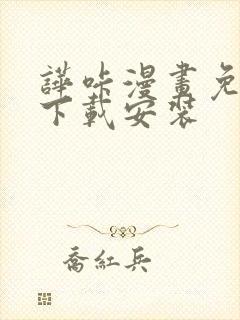 譁咔漫畫免
下載安裝
喬紅兵